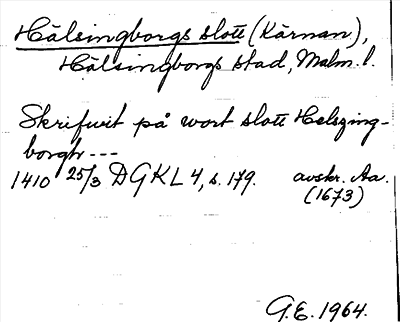 Hälsingborgs slott (Kärnan),
Hälsingborgs stad, Malm. l.
Skrifwit på wort slott Helszing-
borgh ---
1410 25/3 DGKL 4, s. 179. avskr. Aa.
(1673)
G.E. 1964.